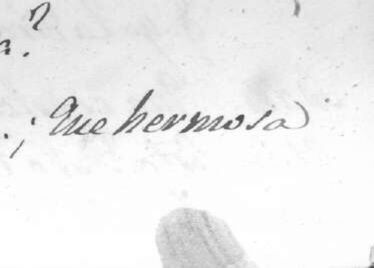 a?
.¡Que hermosa